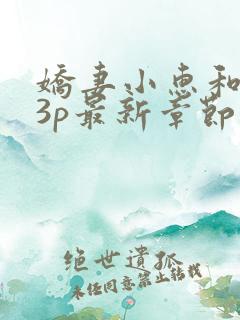 嬌妻小惠和
3p最新章節
絕世遺孤
未经同意禁止转载